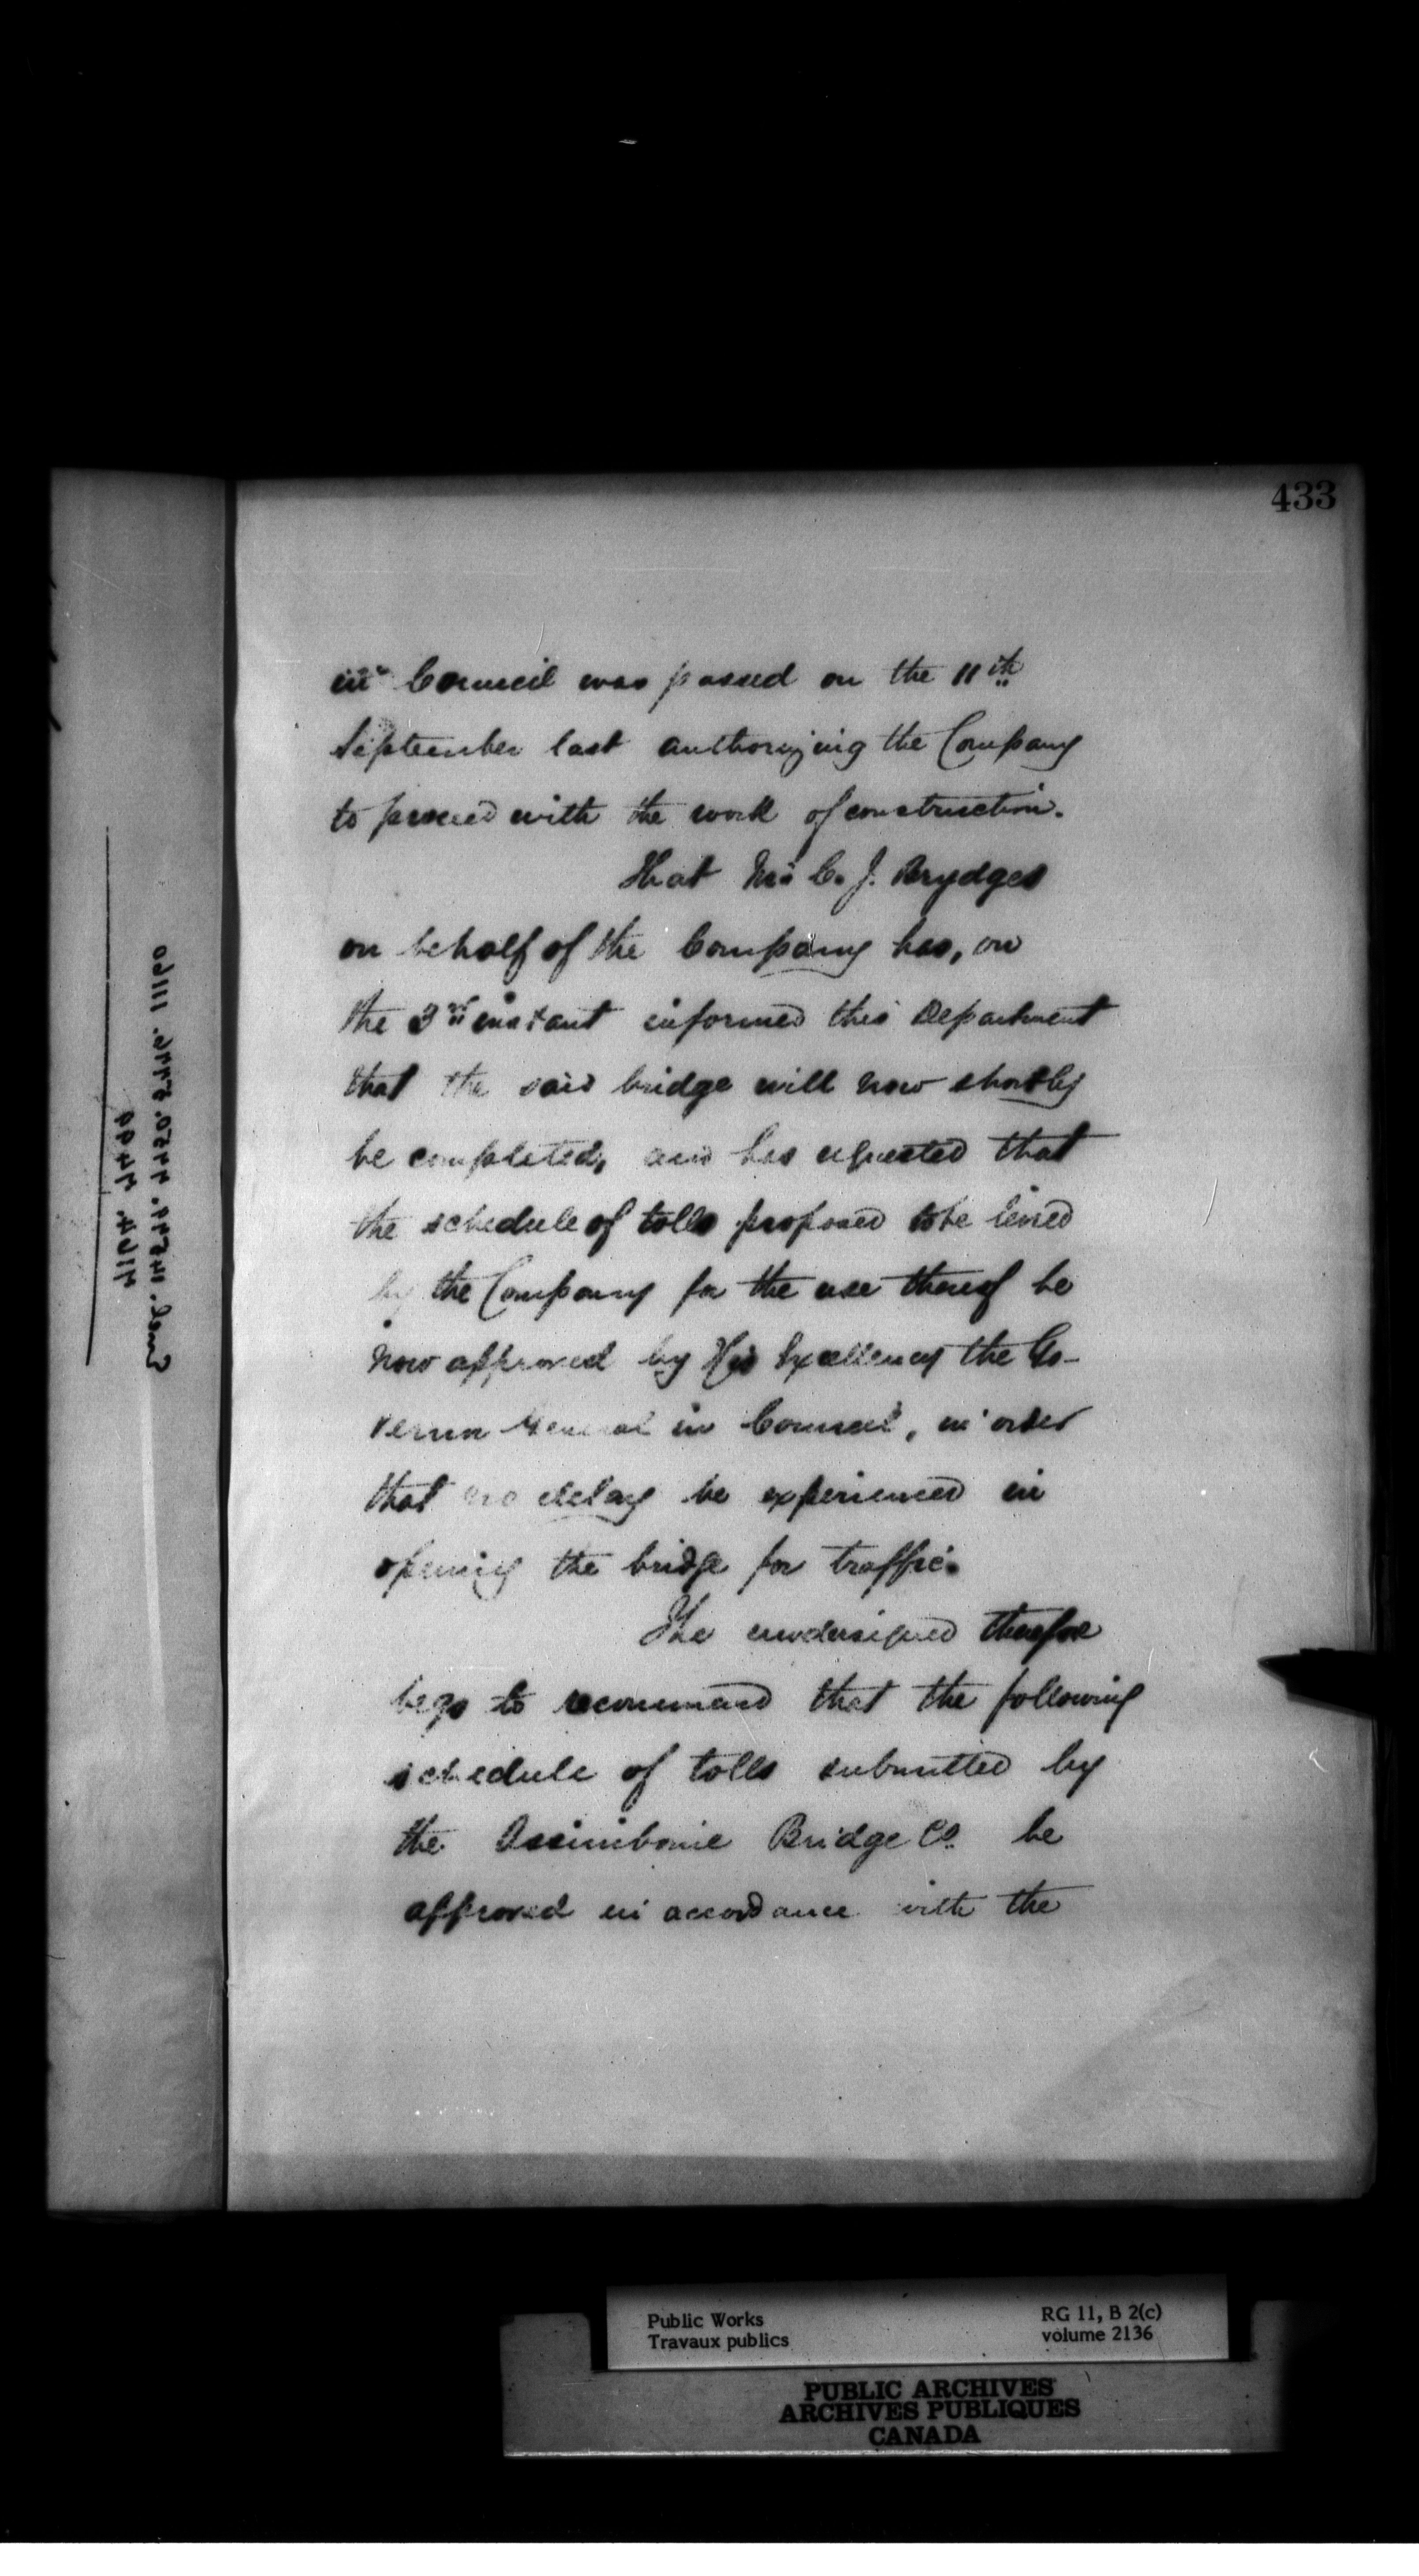 433
in Council was passed on the 11th
September last authorizing the Company
to proceed with the work of construction.
That Mr. C. J. Brydges
on behalf of the Company has, on
the 3rd instant informed this Department
that the said bridge will now shortly
be completed, and has requested that
the schedule of tolls proposed to be levied
by the Company for the use thereof be
now approved by His Excellency the Go-
vernor General in Council, in order
that no delay be experienced in
opening the bridge for traffic.
The undersigned therefore
begs to recommend that the following
schedule of tolls submitted by
the Assiniboine Bridge Co. be
approved in accordance with the
Public Works
Travaux publics
RG 11, B 2(c)
volume 2136
PUBLIC ARCHIVES
ARCHIVES PUBLIQUES
CANADA